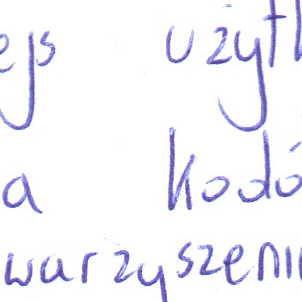 ejs użyt
a kodó
warzyszeni